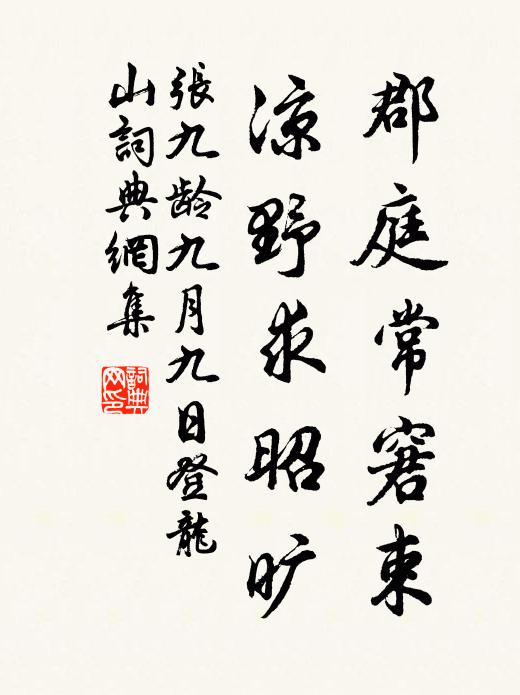 郡庭常窘束
涼野求昭旷
張九龄九月九日登龍
山詞典網集
詞典网印